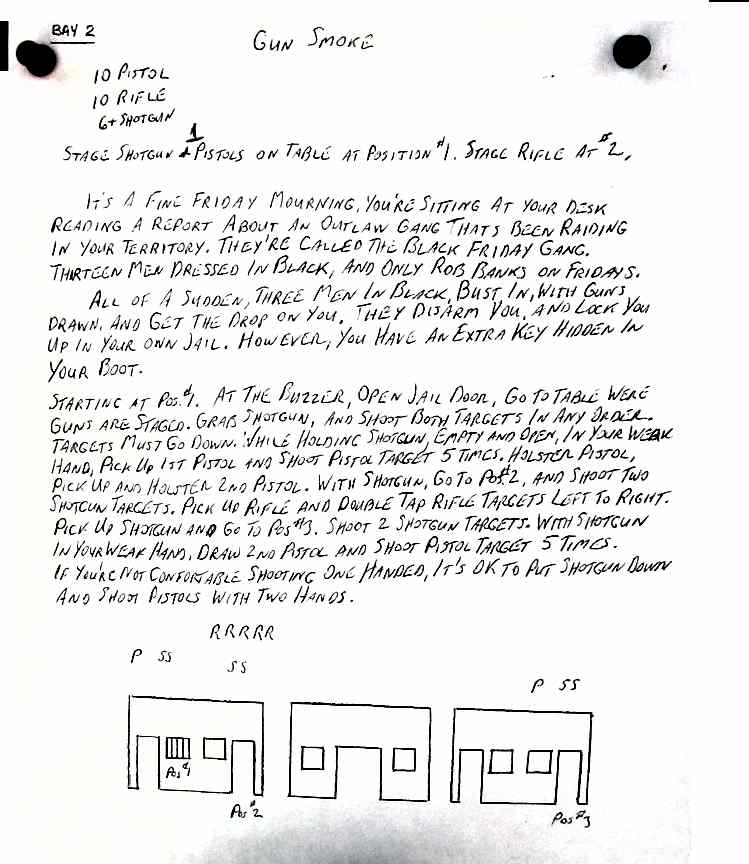 BAY 2
GUN SMOKE
10 PISTOL
10 RIFLE
6+ SHOTGUN
1
STAGE SHOTGUN + PISTOLS ON TABLE AT POSITION #1. STAGE RIFLE AT #2,
IT'S A FINE FRIDAY MOURNING, YOU'RE SITTING AT YOUR DESK
READING A REPORT ABOUT AN OUTLAW GANG THATS BEEN RAIDING
IN YOUR TERRITORY. THEY'RE CALLED THE BLACK FRIDAY GANG.
THIRTEEN MEN DRESSED IN BLACK, AND ONLY ROB BANKS ON FRIDAYS.
ALL OF A SUDDEN, THREE MEN IN BLACK, BUST IN, WITH GUNS
DRAWN, AND GET THE DROP ON YOU. THEY DISARM YOU, AND LOCK YOU
UP IN YOUR OWN JAIL. HOWEVER, YOU HAVE AN EXTRA KEY HIDDEN IN
YOUR BOOT.
STARTING AT POS.#1. AT THE BUZZER, OPEN JAIL DOOR, GO TO TABLE WERE
GUNS ARE STAGED. GRAB SHOTGUN, AND SHOOT BOTH TARGETS IN ANY ORDER.
TARGETS MUST GO DOWN. WHILE HOLDING SHOTGUN, EMPTY AND OPEN, IN YOUR WEAK
HAND, PICK UP 1ST PISTOL AND SHOOT PISTOL TARGET 5 TIMES. HOLSTER PISTOL,
PICK UP AND HOLSTER 2ND PISTOL. WITH SHOTGUN, GO TO POS#2, AND SHOOT TWO
SHOTGUN TARGETS. PICK UP RIFLE AND DOUBLE TAP RIFLE TARGETS LEFT TO RIGHT.
PICK UP SHOTGUN AND GO TO POS#3. SHOOT 2 SHOTGUN TARGETS. WITH SHOTGUN
IN YOUR WEAK HAND, DRAW 2ND PISTOL AND SHOOT PISTOL TARGET 5 TIMES.
IF YOU'RE NOT CONFORTABLE SHOOTING ONE HANDED, IT'S OK TO PUT SHOTGUN DOWN
AND SHOOT PISTOLS WITH TWO HANDS.
RRRRR
P SS
SS
P SS
POS#1
POS#2
POS#3